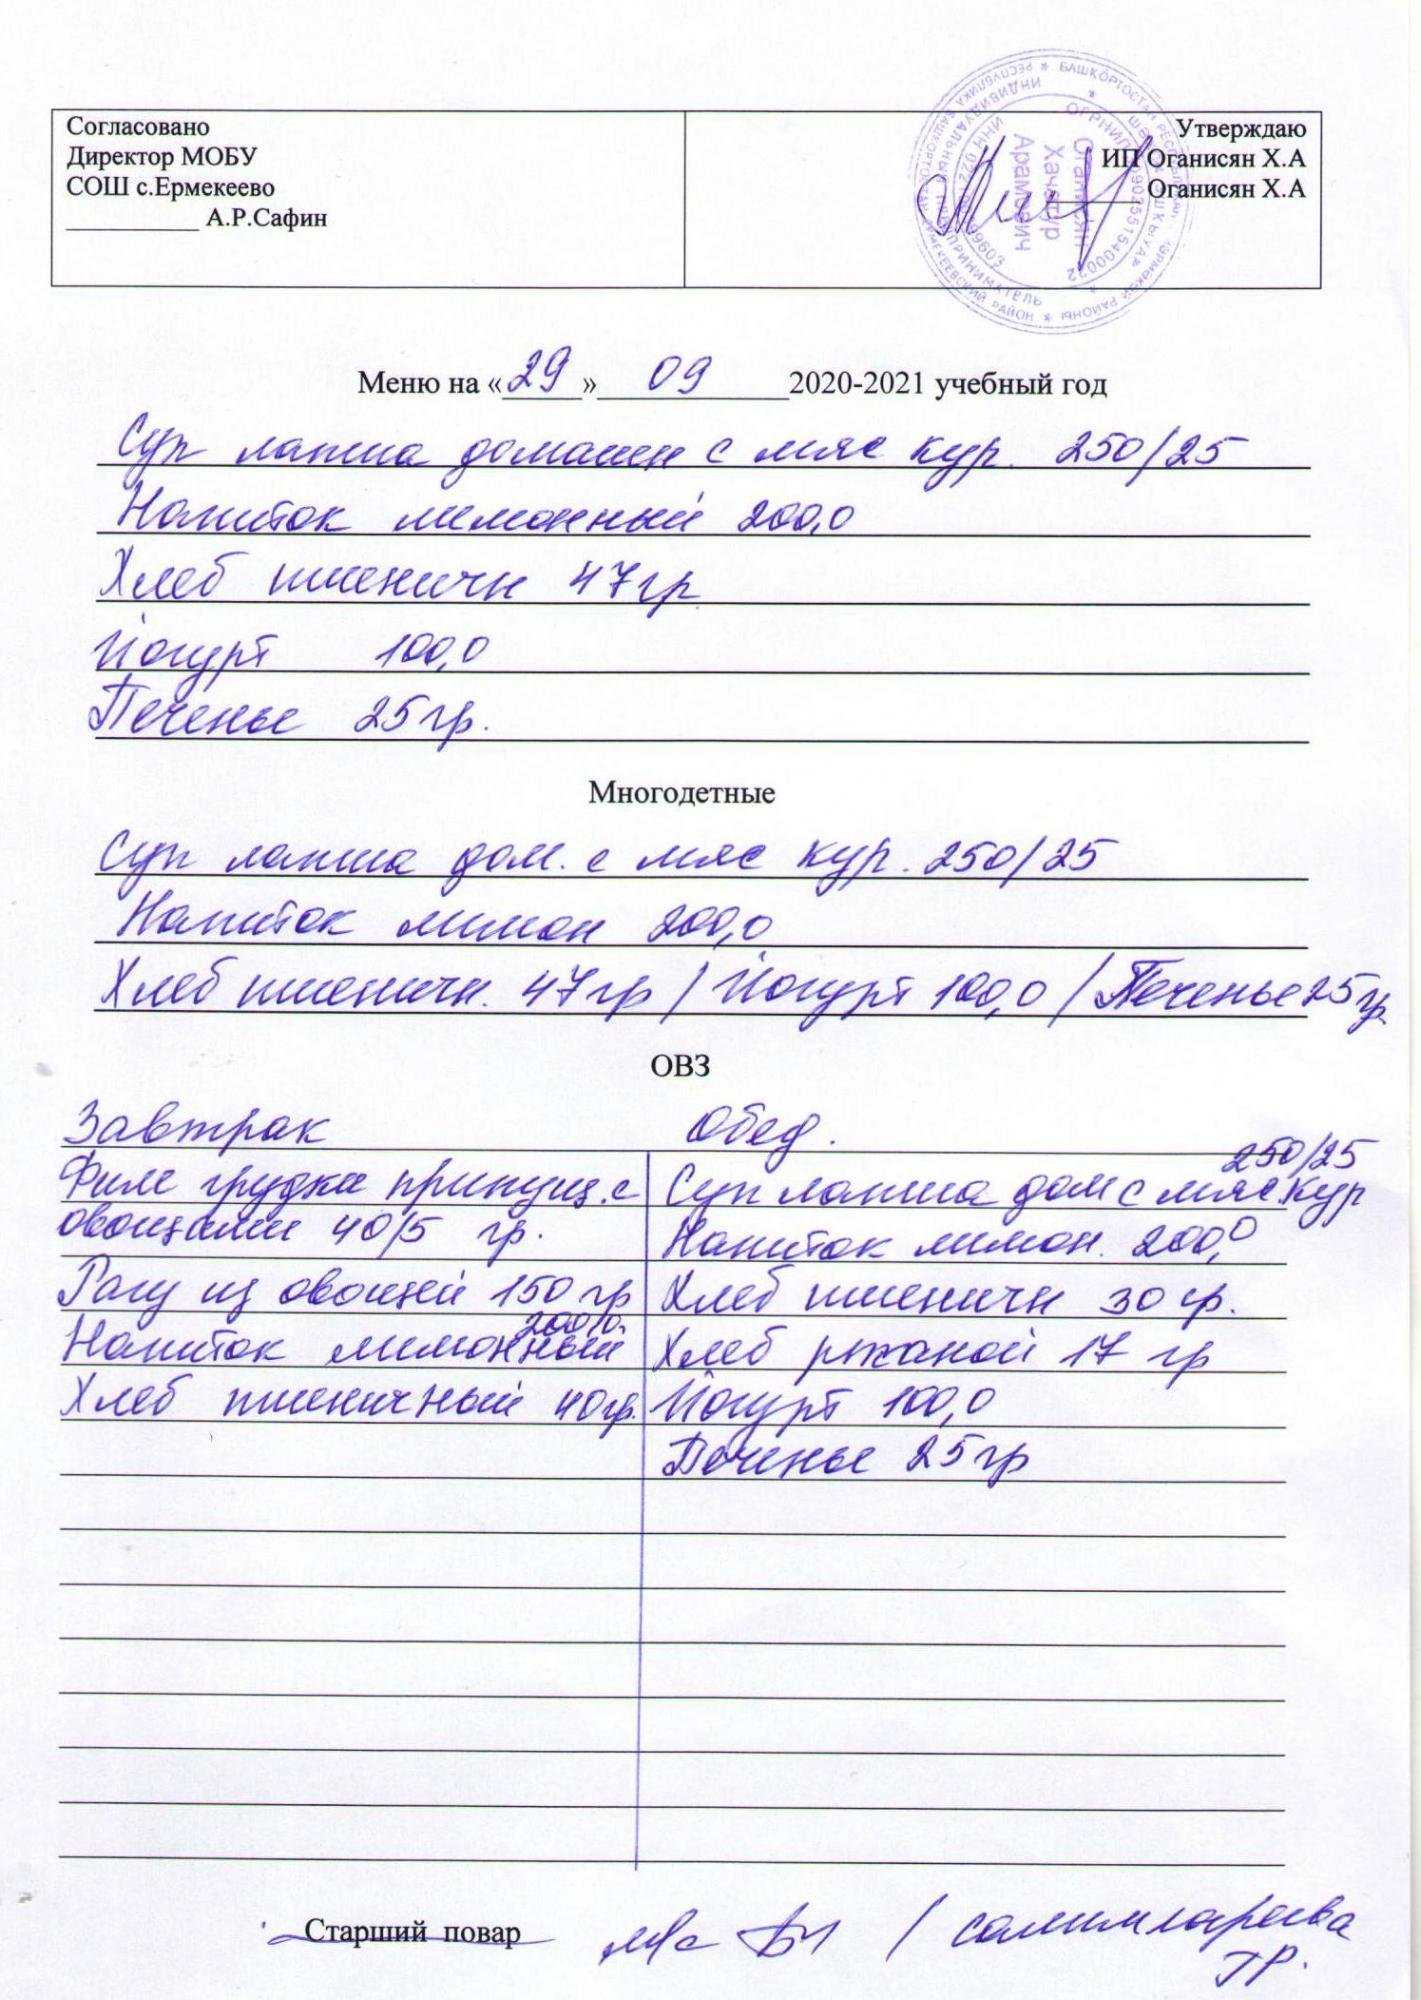 Согласовано
Директор МОБУ
СОШ с.Ермекеево
__________ А.Р.Сафин
Утверждаю
ИП Оганисян Х.А
Оганисян Х.А
Оганисян
Хачатур
Арамович
Меню на «29» 09 2020-2021 учебный год
Суп лапша домашн с мяс кур. 250/25
Напиток лимонный 200,0
Хлеб пшеничн 47гр
Йогурт 100,0
Печенье 25гр.
Многодетные
Суп лапша дом. с мяс кур. 250/25
Напиток лимон 200,0
Хлеб пшеничн. 47гр / Йогурт 100,0 / Печенье 25гр
ОВЗ
Завтрак
Филе грудка припущ. с
овощами 40/5 гр.
Рагу из овощей 150 гр
Напиток лимонный 200,0
Хлеб пшеничный 40гр.
Обед.
Суп лапша дом с мяс.кур 250/25
Напиток лимон. 200,0
Хлеб пшеничн 30 гр.
Хлеб ржаной 17 гр
Йогурт 100,0
Печенье 25гр
Старший повар